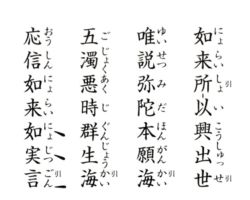 如来所以興出世
にょらいしょ引いこうしゅっせ引
唯説弥陀本願海
ゆいせつみだほんがんかい引
五濁悪時群生海
ごじょくあくじぐんじょうかい引
応信如来如実言
おうしんにょらいにょじつごん引